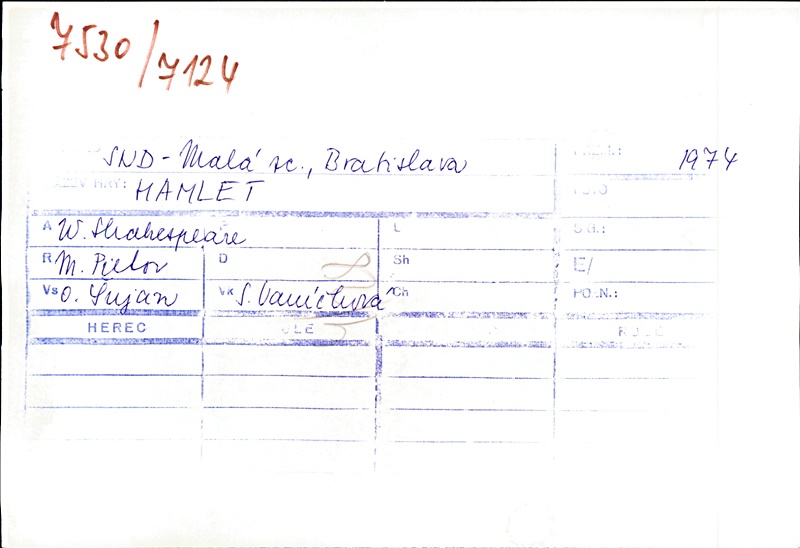 7530/7124
SND - Malá sc., Bratislava 1974
HAMLET
A W. Shakespeare L
R M. Pietor D Sh E/
Vs O. Šujan Vk S. Vaníčková Ch
HEREC